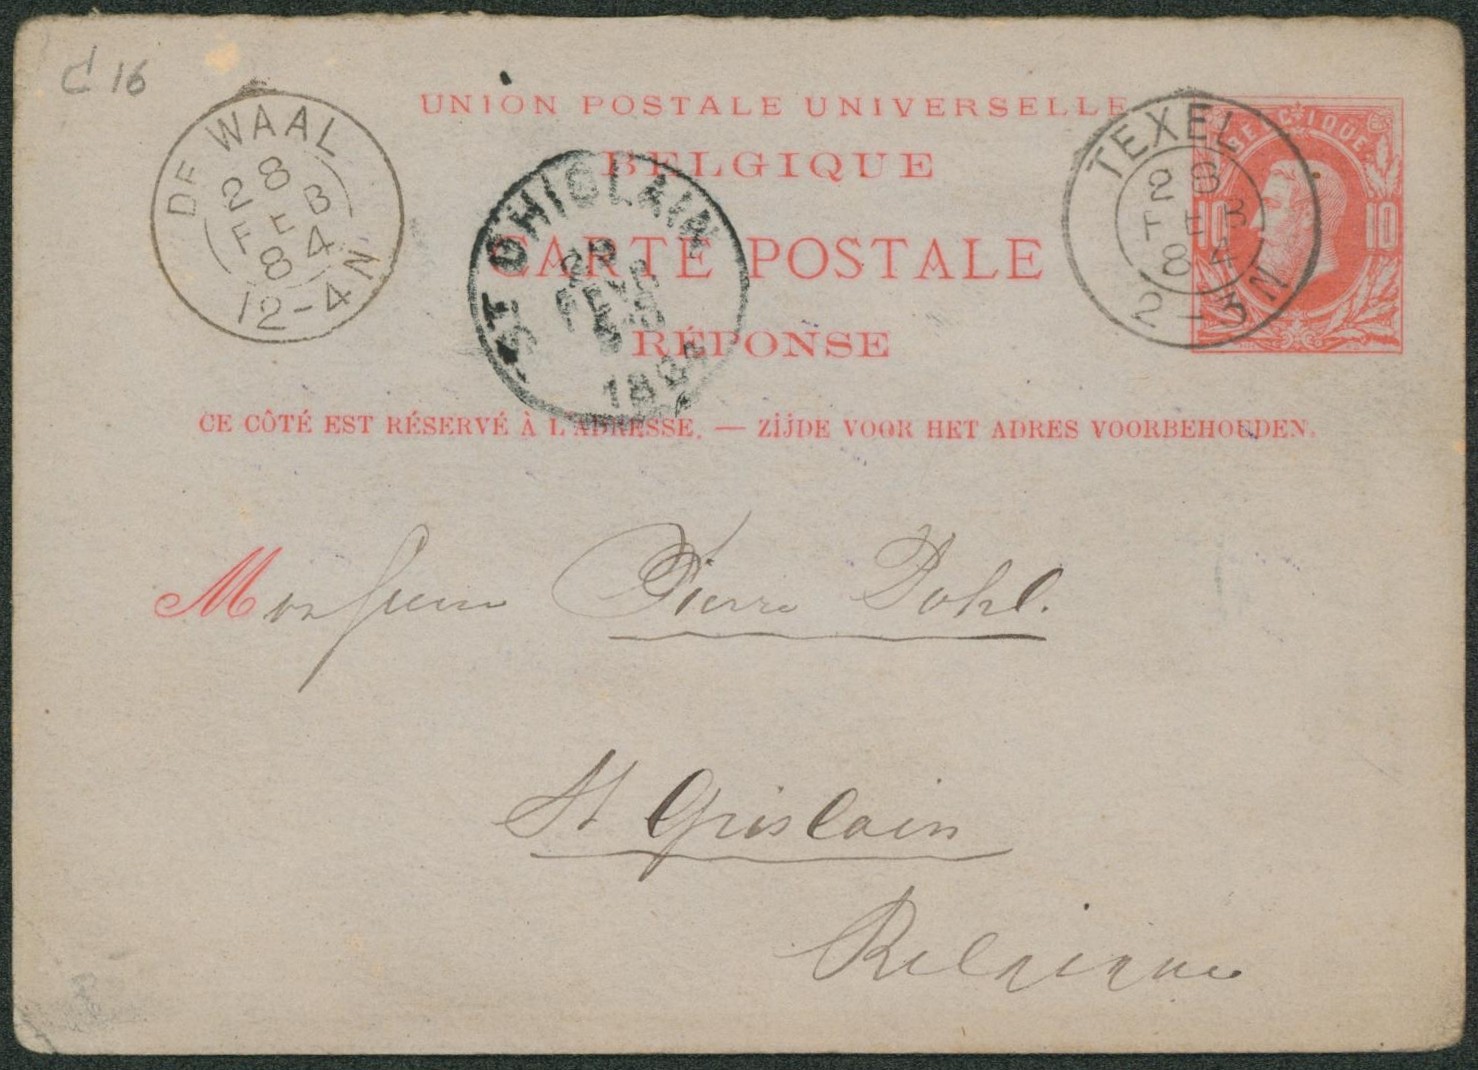 C 16
UNION POSTALE UNIVERSELLE
BELGIQUE
CARTE POSTALE
RÉPONSE
DE WAAL
28
FEB
84
12-4N
ST GHISLAIN
FEVR
TEXEL
28
FEB
84
2-3N
BELGIQUE
10 10
CE CÔTÉ EST RÉSERVÉ À L'ADRESSE. — ZIJDE VOOR HET ADRES VOORBEHOUDEN.
Monsieur Pierre Pohl.
St Ghislain
Belgique